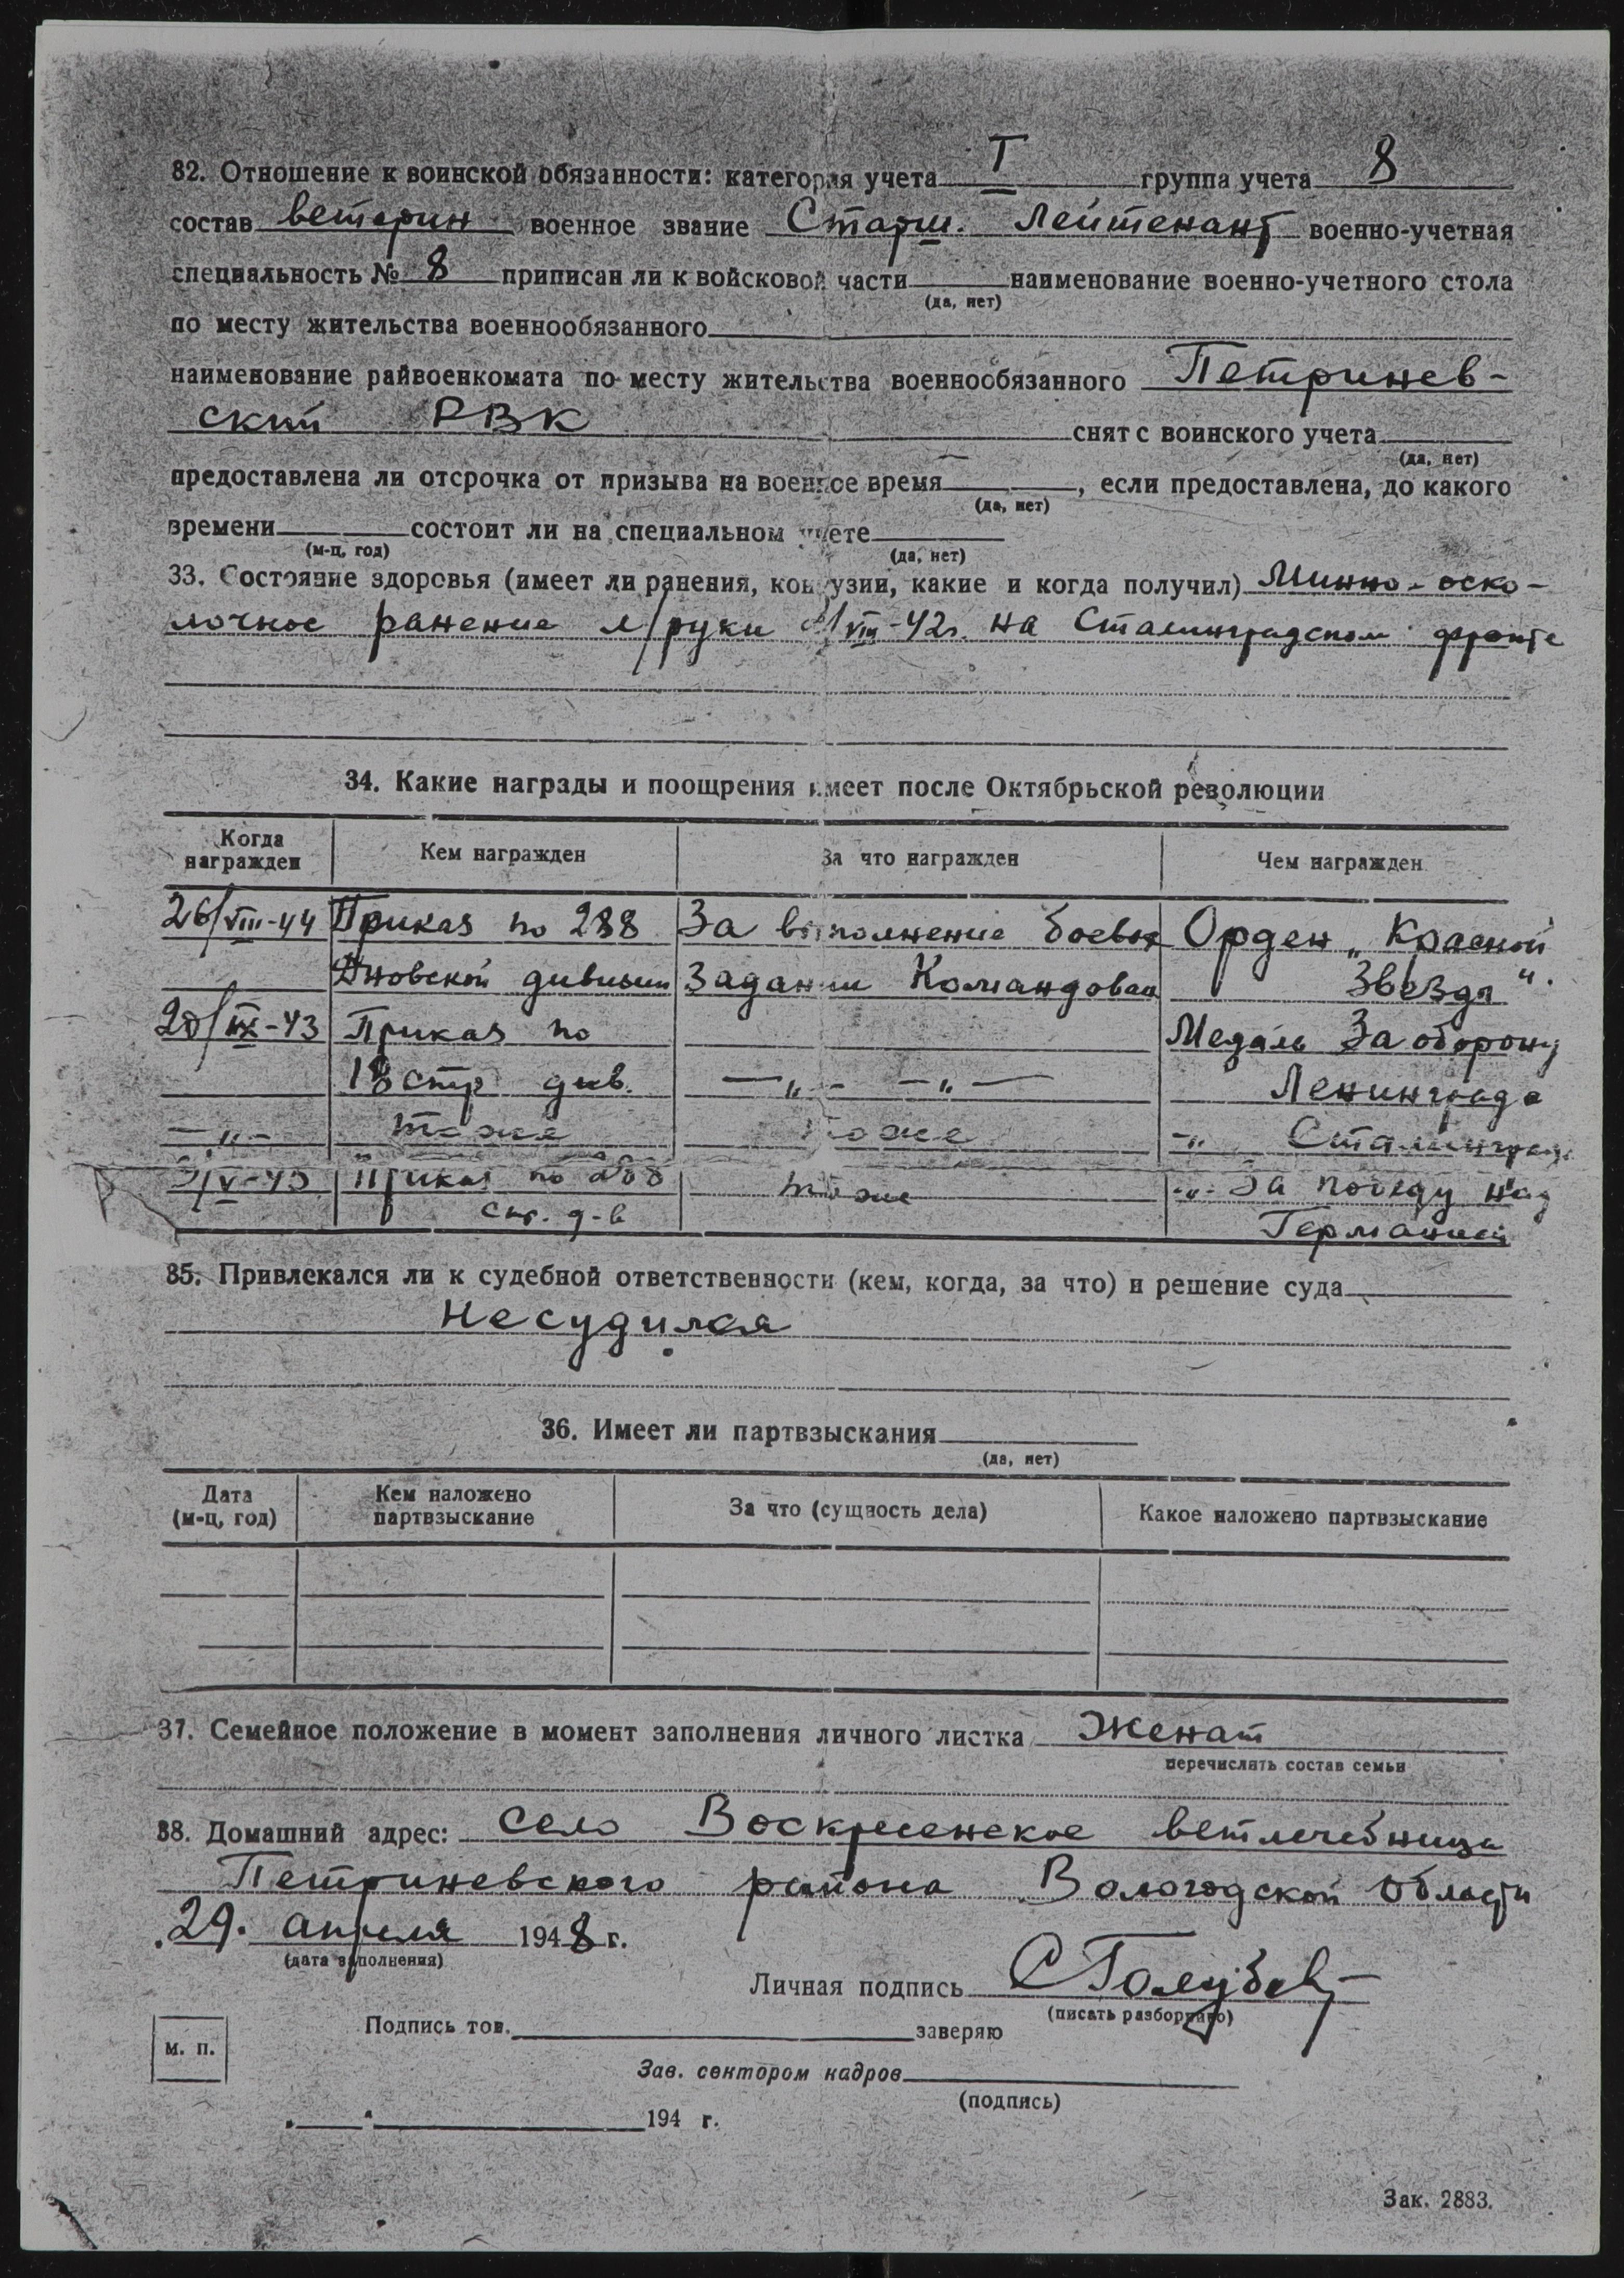 32. Отношение к воинской обязанности: категория учета I группа учета 8
состав ветерин военное звание Старш. Лейтенант военно-учетная
специальность № 8 приписан ли к войсковой части наименование военно-учетного стола
(да, нет)
по месту жительства военнообязанного
наименование райвоенкомата по месту жительства военнообязанного Петринев-
ский РВК снят с воинского учета
(да, нет)
предоставлена ли отсрочка от призыва на военное время — , если предоставлена, до какого
(да, нет)
времени состоит ли на специальном учете
(м-ц, год) (да, нет)
33. Состояние здоровья (имеет ли ранения, контузии, какие и когда получил) Минно-оско-
лочное ранение л/руки VIII-42г. на Сталинградском фронте
34. Какие награды и поощрения имеет после Октябрьской революции
Когда награжден Кем награжден За что награжден Чем награжден
26/VIII-44 Приказ по 288 За выполнение боевых Орден „Красной
Дновской дивизии Задании Командован Звезды".
20/IX-43 Приказ по Медаль За оборону
18 стр див. —„— —„— Ленинграда
—„— тоже тоже —„ Сталинград
9/V-45 Приказ по 288 тоже —„— За победу над
стр. д-в Германией
35. Привлекался ли к судебной ответственности (кем, когда, за что) и решение суда
Несудился
36. Имеет ли партвзыскания
(да, нет)
Дата (м-ц, год) Кем наложено партвзыскание За что (сущность дела) Какое наложено партвзыскание
37. Семейное положение в момент заполнения личного листка Женат
перечислить состав семьи
38. Домашний адрес: село Воскресенское ветлечебница
Петриневского района Вологодской области
29. апреля 1948 г.
(дата заполнения)
Личная подпись СГолубев
(писать разборчиво)
Подпись тов. заверяю
м. п.
Зав. сектором кадров
(подпись)
„ “ 194 г.
Зак. 2883.